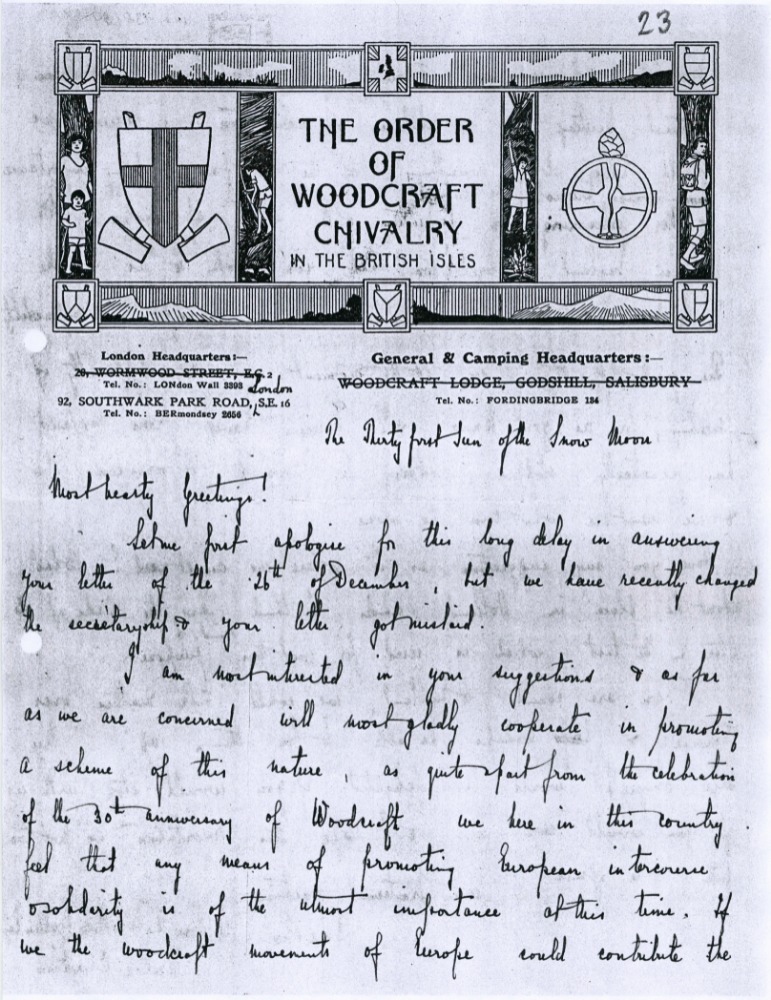 23
THE ORDER
OF
WOODCRAFT
CHIVALRY
IN THE BRITISH ISLES
London Headquarters:—
20, WORMWOOD STREET, E.C. 2
Tel. No.: LONdon Wall 3393
London
92, SOUTHWARK PARK ROAD, S.E. 16
Tel. No.: BERmondsey 2656
General & Camping Headquarters:—
WOODCRAFT LODGE, GODSHILL, SALISBURY
Tel. No.: FORDINGBRIDGE 184
The Thirty first Sun of the Snow Moon
Most hearty Greetings!
Let me first apologise for this long delay in answering
your letter of the 26th of December, but we have recently changed
the secretaryship & your letter got mislaid.
I am most interested in your suggestions & as far
as we are concerned will most gladly cooperate in promoting
a scheme of this nature, as quite apart from the celebration
of the 30th anniversary of Woodcraft we here in this country
feel that any means of promoting European intercourse
& solidarity is of the utmost importance at this time. If
we the woodcraft movements of Europe could contribute the